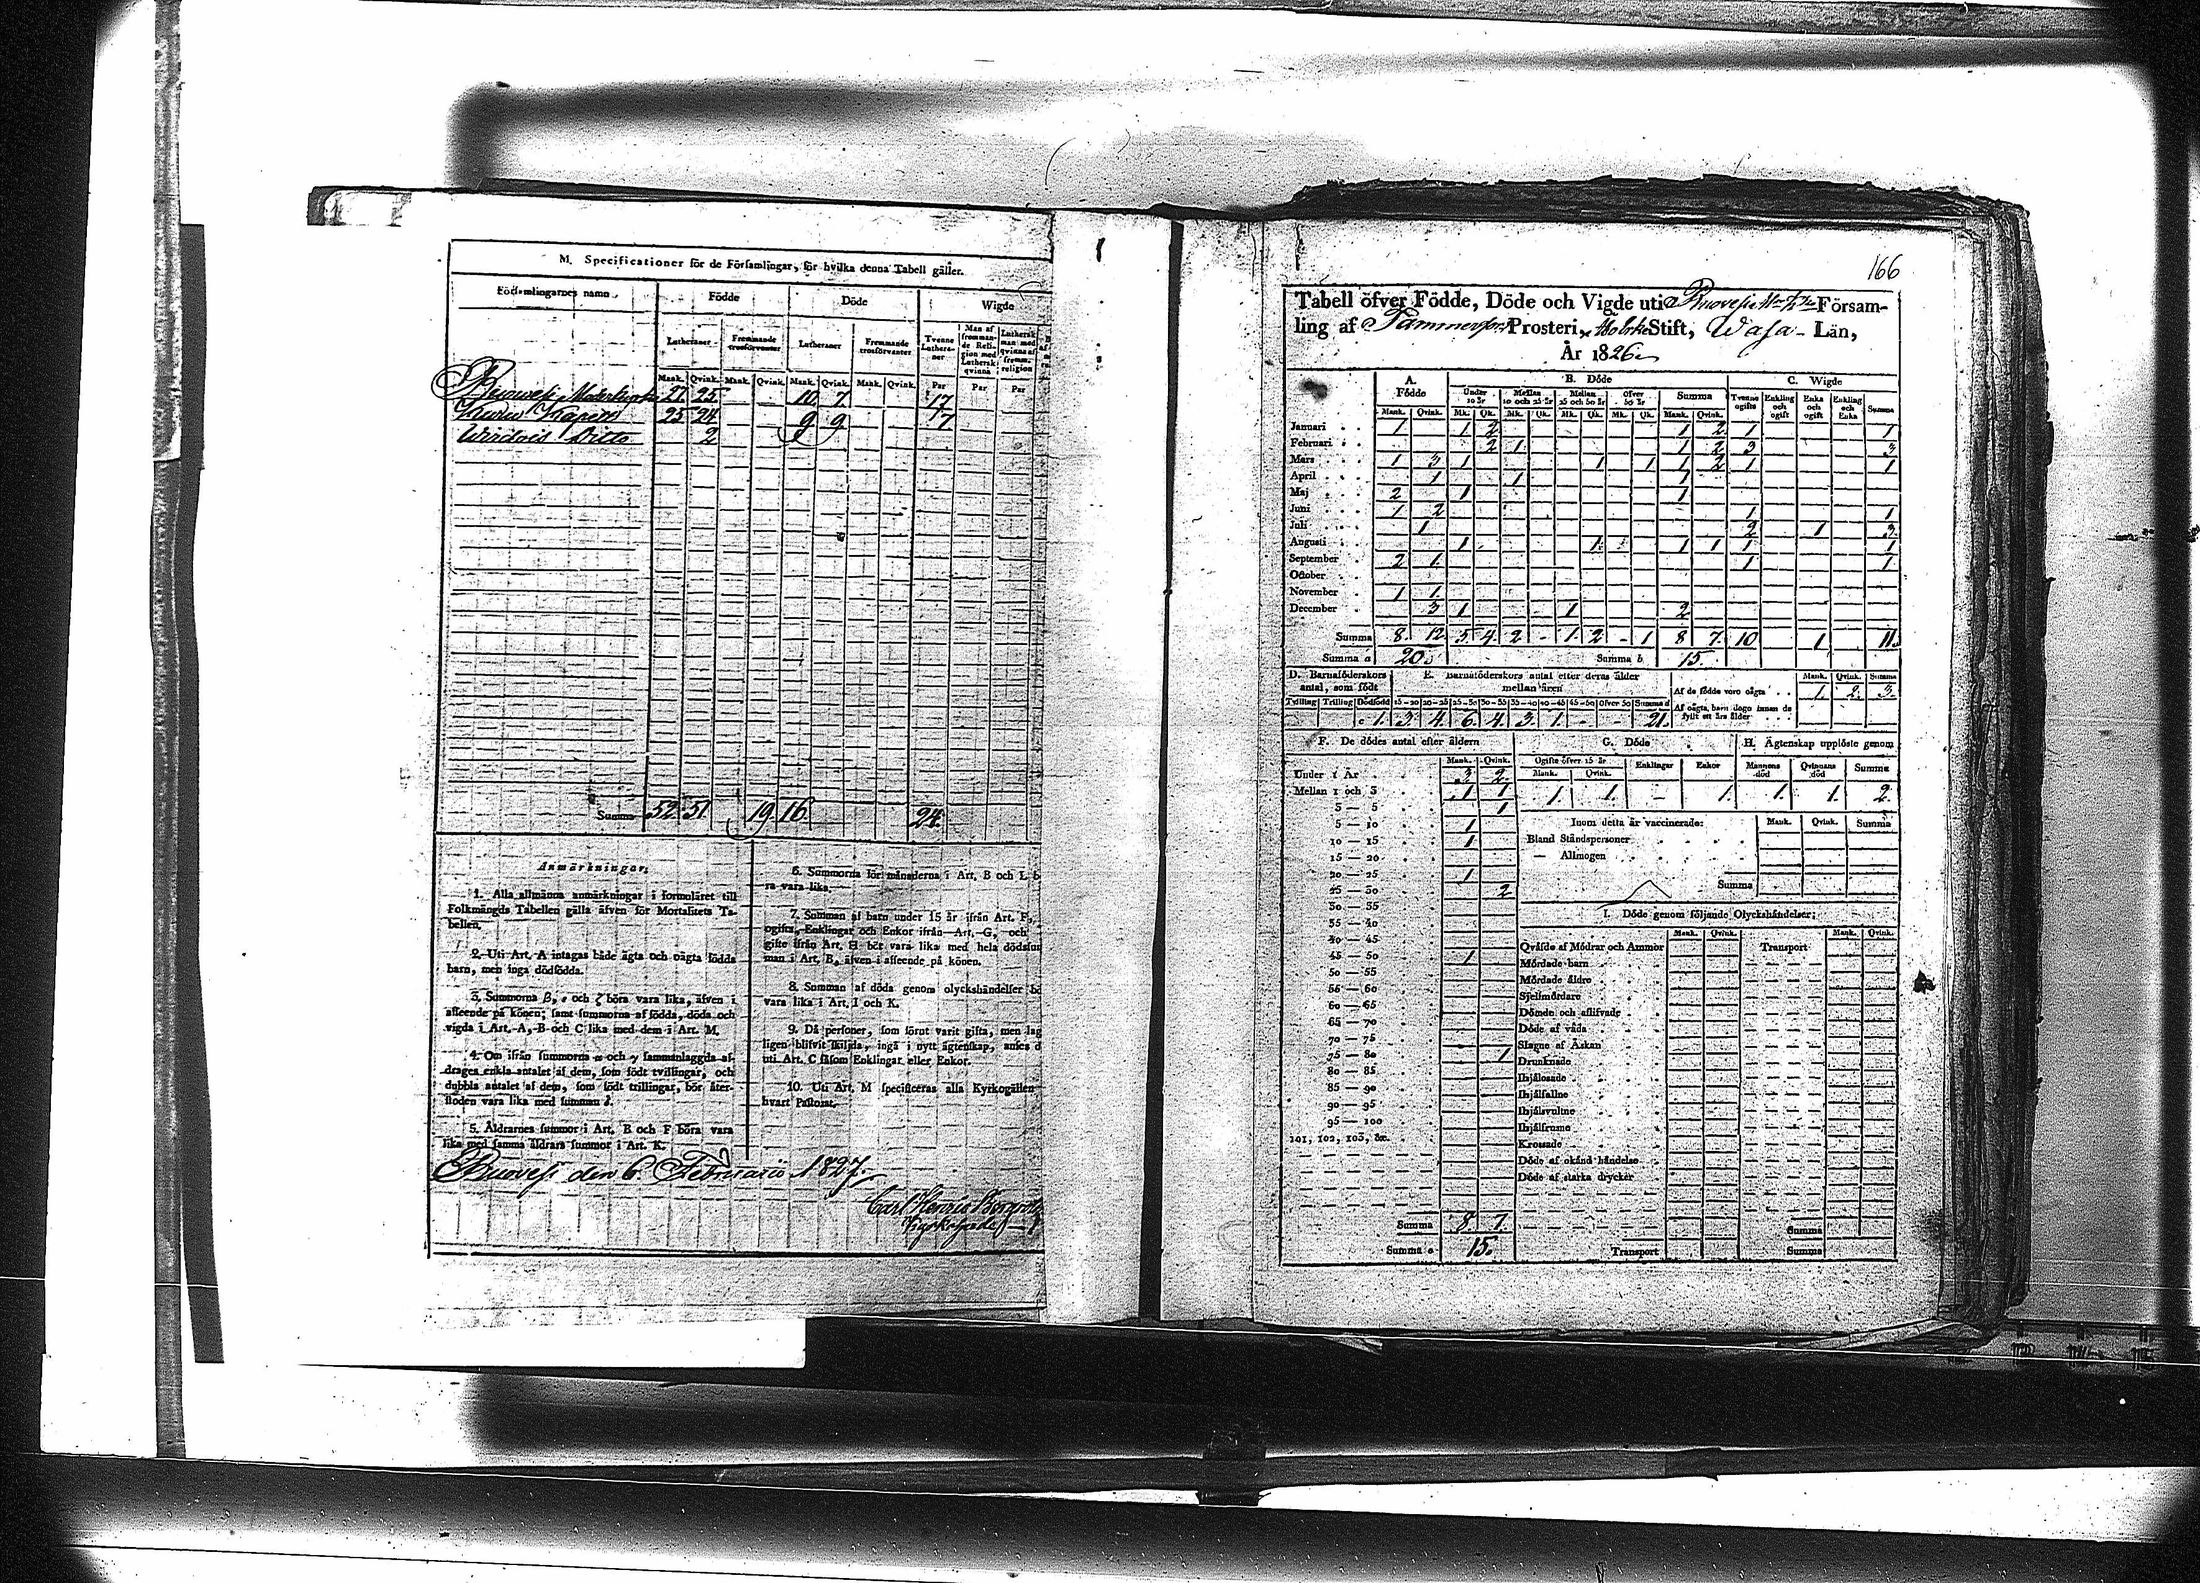 M. Specificationer för de Församlingar, för hvilka denna Tabell gäller.
Församlingarnes namn.
Födde
Döde
Wigde
Lutheraner
Fremmande trosförvanter
Lutheraner
Fremmande trosförvanter
Tvenne Lutheraner
Man af fremmande Religion med Luthersk qvinna
Luthersk man med qvinna af fremm. religion
Mank. Qvink. Mank. Qvink. Mank. Qvink. Mank. Qvink. Par Par Par
Ruovesi Moderkyrka 27 25 10 7 17
Kuru Kapell 25 24 9 9 7
Wirdois Ditto 2
Summa 52 51 19 16 24
Anmärkningar.
1. Alla allmänna anmärkningar i formuläret till
Folkmängds Tabellen gälla äfven för Mortalitets Ta-
bellen.
2. Uti Art. A intagas både ägta och oägta födda
barn, men inga dödfödda.
3. Summorna β, ε och ζ böra vara lika, äfven i
afseende på könen; samt summorna af födda, döda och
vigda i Art. A, B och C lika med dem i Art. M.
4. Om ifrån summorna α och γ sammanlaggda af-
drages enkla antalet af dem, som födt tvillingar, och
dubbla antalet af dem, som födt trillingar, bör åter-
stoden vara lika med summan δ.
5. Åldrarnes summor i Art. B och F böra vara
lika med samma åldrars summor i Art. K.
6. Summorna för månaderna i Art. B och L b
ra vara lika.
7. Summan af barn under 15 år ifrån Art. F,
ogifte, Enklingar och Enkor ifrån Art. G, och
gifte ifrån Art. H bör vara lika med hela dödsfum
man i Art. B, äfven i afseende på könen.
8. Summan af döda genom olyckshändelser bö
vara lika i Art. I och K.
9. Då personer, som förut varit gifta, men lag
ligen blifvit skiljda, ingå i nytt ägtenskap, anses d
uti Art. C såsom Enklingar eller Enkor.
10. Uti Art. M specificeras alla Kyrkogällen
hvart Pastorat.
Ruovesi den 6 Februarii 1827.
Carl Henric Bergroth
166
Tabell öfver Födde, Döde och Vigde uti Ruovesi Församling
ling af Tammerfors Prosteri, Åbo Stift, Wasa Län,
År 1826
A. Födde
B. Döde
C. Wigde
Under 10 år
Mellan 10 och 25 år
Mellan 25 och 50 år
Öfver 50 år
Summa
Tvenne ogifte
Enkling och ogift
Enka och ogift
Enkling och Enka
Summa
Mank. Qvink. Mk. Qk. Mk. Qk. Mk. Qk. Mk. Qk. Mank. Qvink.
Januari 1 1 2 1 2 1 1
Februari 2 1 1 2 3 3
Mars 1 3 1 1 1 1 2 1 1
April 1 1 1
Maj 2 1 1
Juni 1 2 1 1
Juli 1 2 1 3
Augusti 1 1 1 1 1 1
September 2 1 1 1
October
November 1 1
December 3 1 1 2
Summa 8 12 5 4 2 - 1 2 - 1 8 7 10 1 11
Summa α 20 Summa β 15
D. Barnaföderskors antal, som födt
E. Barnaföderskors antal efter deras ålder mellan åren
Mank. Qvink. Summa
Af de födde voro oägta 1 2 3
Af oägta barn dogo innan de fyllt ett års ålder
Tvilling Trilling Dödfödd 15-20 20-25 25-30 30-35 35-40 40-45 45-50 Öfver 50 Summa δ
1 3 4 6 4 3 1 - - 21
F. De dödes antal efter åldern
Mank. Qvink.
Under 1 År 3 2
Mellan 1 och 3 1 1
3 — 5 1
5 — 10 1
10 — 15 1
15 — 20
20 — 25 1
25 — 30 2
30 — 35
35 — 40
40 — 45
45 — 50 1
50 — 55
55 — 60
60 — 65
65 — 70
70 — 75
75 — 80 1
80 — 85
85 — 90
90 — 95
95 — 100
101, 102, 103, &c.
Summa 8 7
Summa ε 15
G. Döde
Ogifte öfver 15 år
Enklingar
Enkor
Mank. Qvink.
1 1 - 1
H. Ägtenskap upplöste genom
Mannens död
Qvinnans död
Summa
1 1 2
Inom detta år vaccinerade: Mank. Qvink. Summa
Bland Ståndspersoner
— Allmogen
Summa
I. Döde genom följande Olyckshändelser:
Mank. Qvink. Mank. Qvink.
Qväfde af Mödrar och Ammor Transport
Mördade barn
Mördade äldre
Sjelfmördare
Dömde och aflifvade
Döde af våda
Slagne af Åskan
Drunknade
Ihjälosade
Ihjälfallne
Ihjälsvultne
Ihjälfrusne
Krossade
Döde af okänd händelse
Döde af starka drycker
Summa
Transport Summa